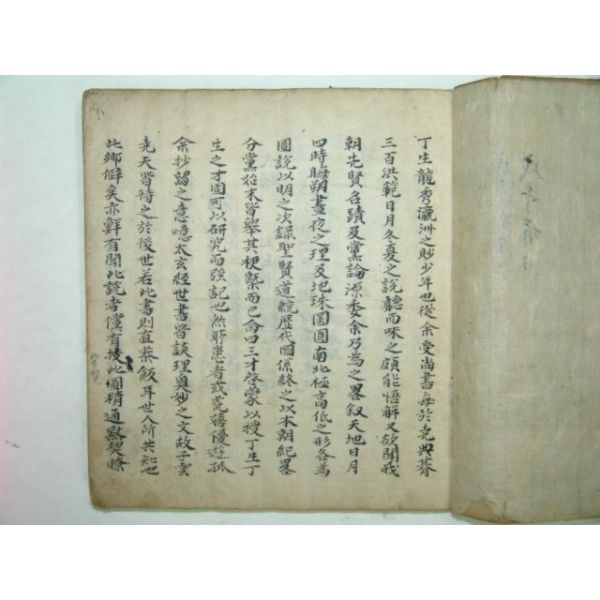 丁生龍秀瀛洲之眇少年也從余受尚書每於堯典朞
三百洪範日月冬夏之說聽而味之頗能悟解又欲聞我
朝先賢名蹟及黨論源委余乃爲之畧叙天地日月
四時晦朔晝夜之理及地球圜圓南北極高低之形各爲
圖說以明之次錄聖賢道統歷代國係終之以本朝紀畧
分黨始末皆擧其梗槩而已命曰三才啓蒙以授丁生丁
生之才固可以硏究而强記也然耶患者或荒嬉優遊抓
余抄錄之意噫太玄經世書皆談理奧妙之文故子雲
堯天皆待之於後世若此書則直茶飯耳世人所共知也
此鄕僻矣亦鮮有聞此說者僅有按此圖精通默契瞭